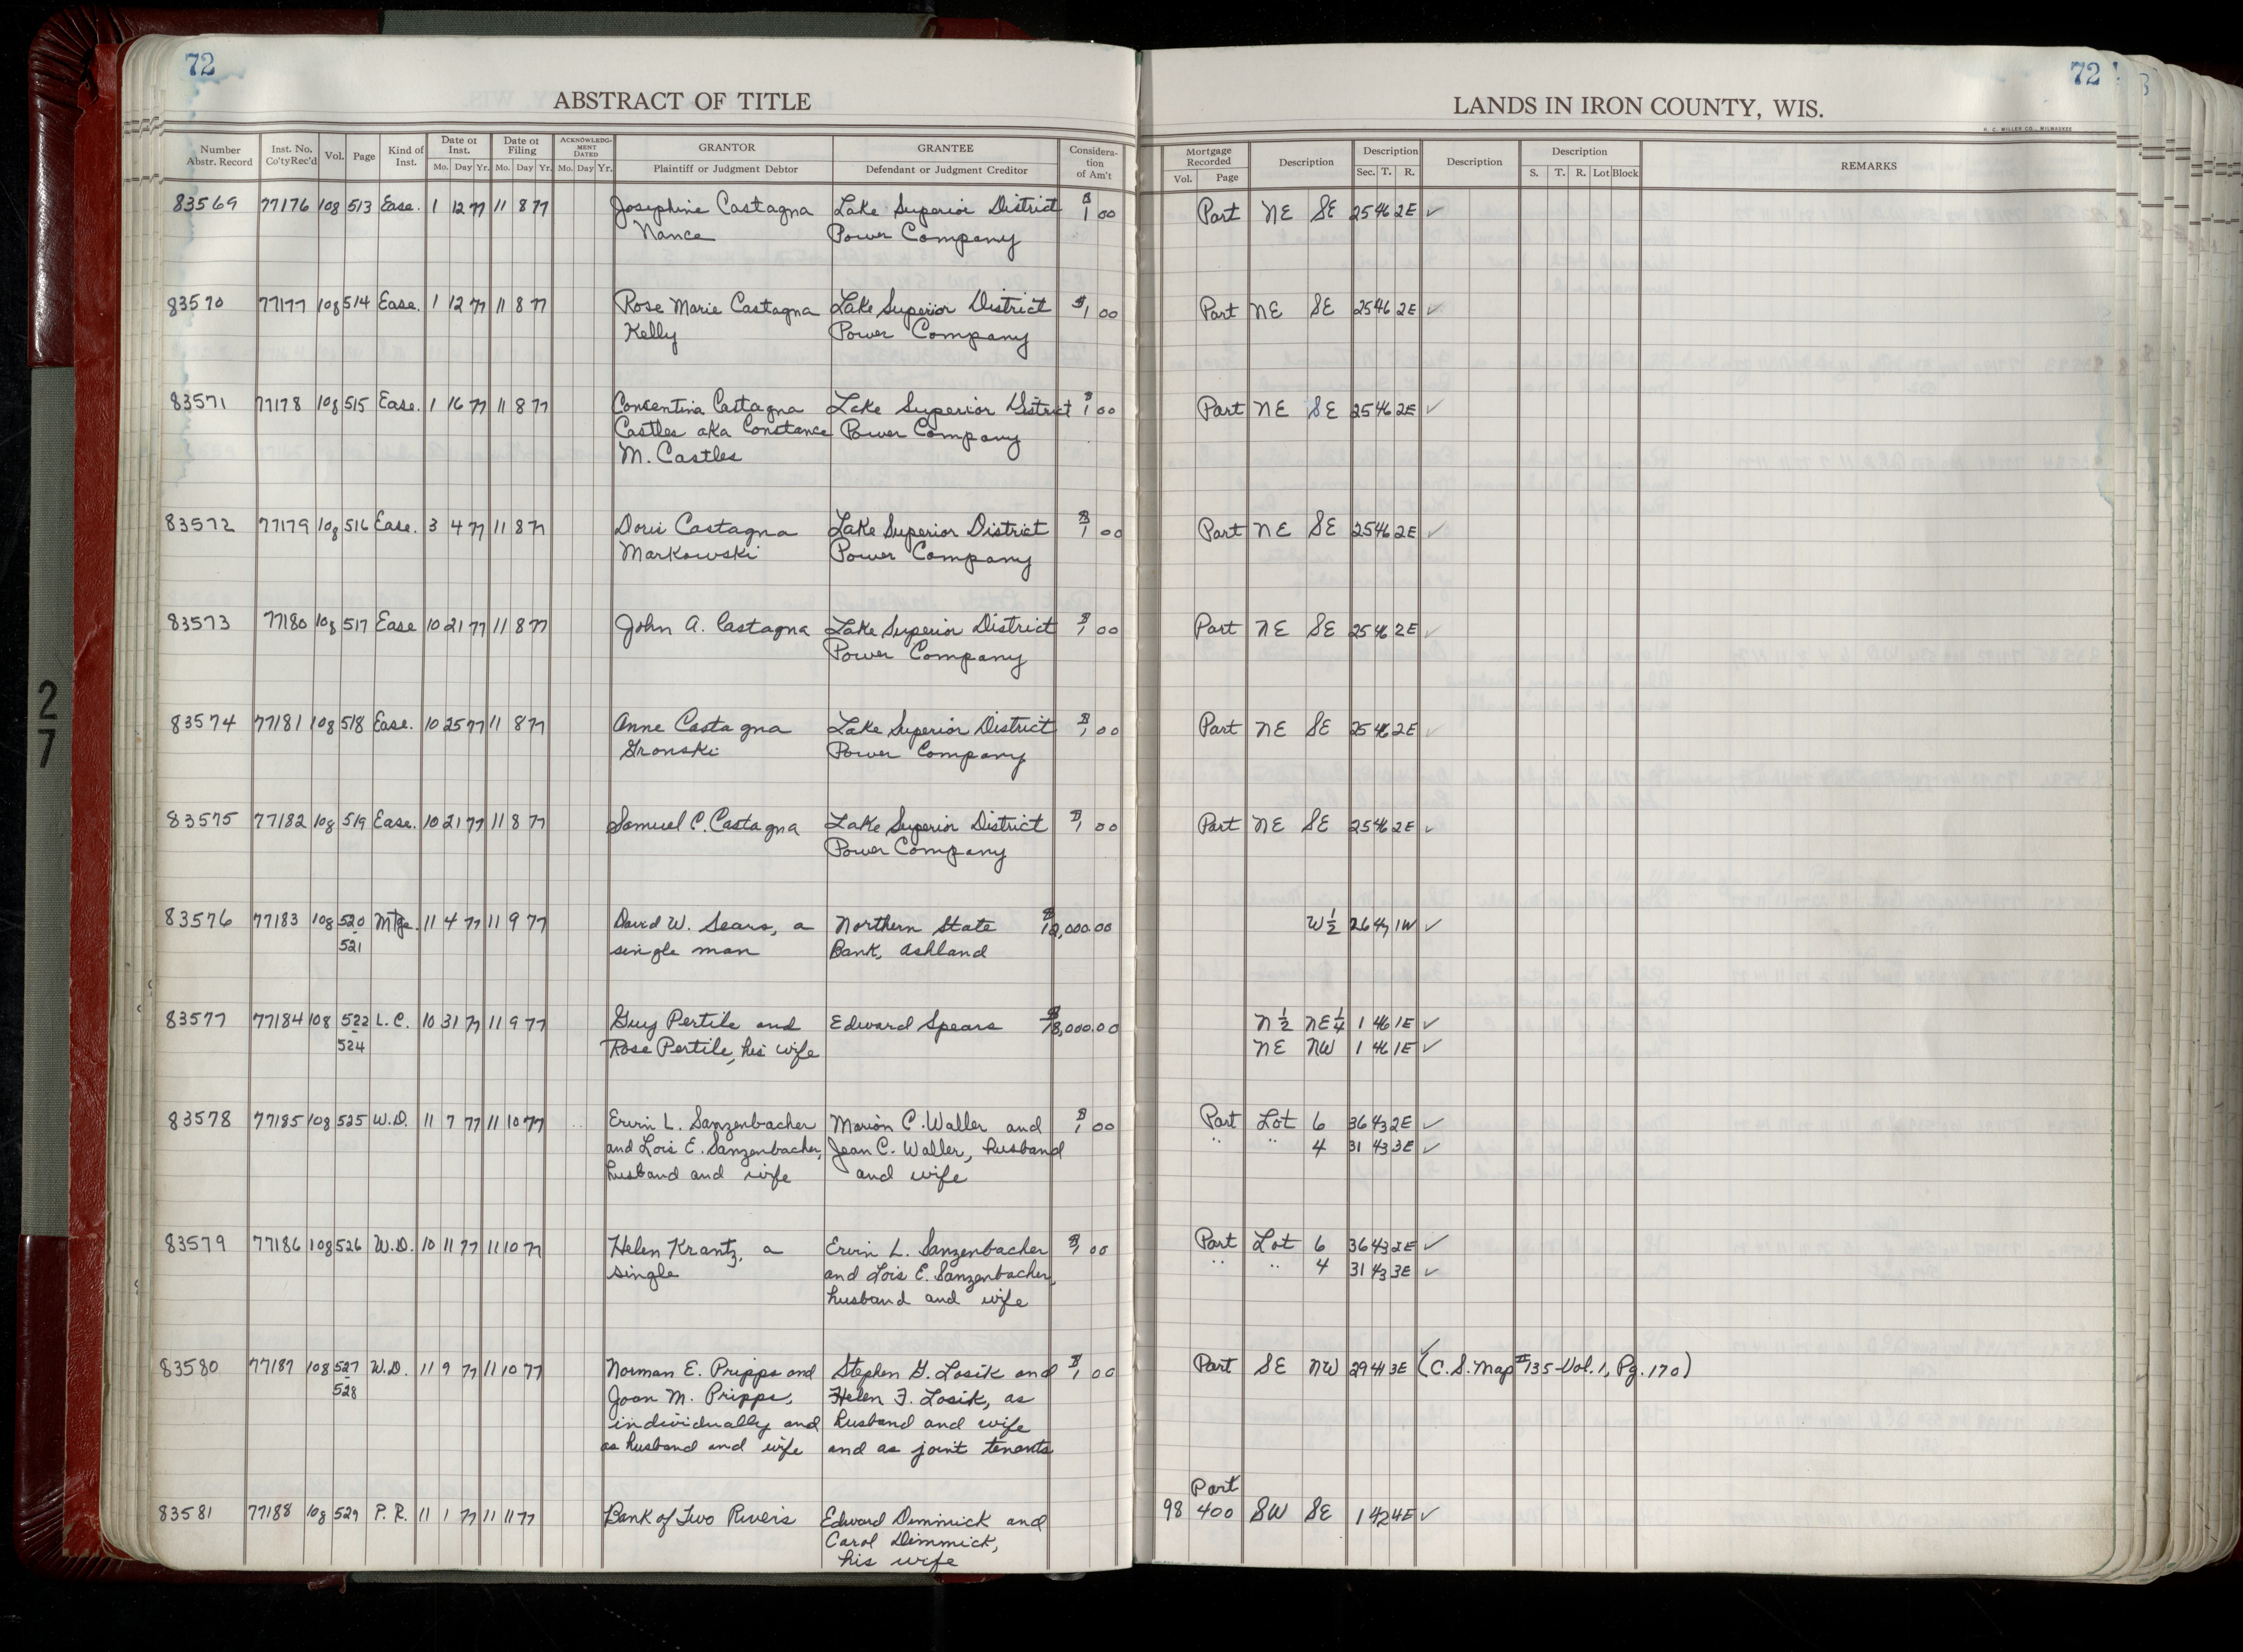 72
ABSTRACT OF TITLE
Number Abstr. Record | Inst. No. Co'ty Rec'd | Vol. | Page | Kind of Inst. | Date of Inst. Mo. Day Yr. | Date of Filing Mo. Day Yr. | ACKNOWLEDGMENT DATED Mo. Day Yr. | GRANTOR Plaintiff or Judgment Debtor | GRANTEE Defendant or Judgment Creditor | Consideration of Am't
72
LANDS IN IRON COUNTY, WIS.
H. C. MILLER CO., MILWAUKEE
Mortgage Recorded Vol. Page | Description | Description Sec. T. R. | Description | Description S. T. R. Lot Block | REMARKS
83569 77176 108 513 Ease. 1 12 77 11 8 77 Josephine Castagna Lake Superior District $1 00 Part NE SE 25 46 2E ✓
Nance Power Company
83570 77177 108 514 Ease. 1 12 77 11 8 77 Rose Marie Castagna Lake Superior District $1 00 Part NE SE 25 46 2E ✓
Kelly Power Company
83571 77178 108 515 Ease. 1 16 77 11 8 77 Consentina Castagna Lake Superior District $1 00 Part NE SE 25 46 2E ✓
Castles aka Constance Power Company
M. Castles
83572 77179 108 516 Ease. 3 4 77 11 8 77 Doris Castagna Lake Superior District $1 00 Part NE SE 25 46 2E ✓
Markowski Power Company
83573 77180 108 517 Ease 10 21 77 11 8 77 John A. Castagna Lake Superior District $1 00 Part NE SE 25 46 2E ✓
Power Company
83574 77181 108 518 Ease. 10 25 77 11 8 77 Anne Castagna Lake Superior District $1 00 Part NE SE 25 46 2E ✓
Gronski Power Company
83575 77182 108 519 Ease. 10 21 77 11 8 77 Samuel C. Castagna Lake Superior District $1 00 Part NE SE 25 46 2E ✓
Power Company
83576 77183 108 520 Mtge. 11 4 77 11 9 77 David W. Sears, a Northern State $12,000.00 W½ 26 47 1W ✓
- 521 single man Bank, Ashland
83577 77184 108 522 L.C. 10 31 77 11 9 77 Guy Pertile and Edward Spears $18,000.00 N½ NE¼ 1 46 1E ✓
- 524 Rose Pertile, his wife NE NW 1 46 1E ✓
83578 77185 108 525 W.D. 11 7 77 11 10 77 Ervin L. Sanzenbacher Marion C. Waller and $1 00 Part Lot 6 36 43 2E ✓
and Lois E. Sanzenbacher, Jean C. Waller, husband " " 4 31 43 3E ✓
husband and wife and wife
83579 77186 108 526 W.D. 10 11 77 11 10 77 Helen Krantz, a Ervin L. Sanzenbacher $1 00 Part Lot 6 36 43 2E ✓
single and Lois E. Sanzenbacher, " " 4 31 43 3E ✓
husband and wife
83580 77187 108 527 W.D. 11 9 77 11 10 77 Norman E. Pripps and Stephen G. Losik and $1 00 Part SE NW 29 41 3E ✓ (C.S. Map #135-Vol. 1, Pg. 170)
- 528 Joan M. Pripps, Helen F. Losik, as
individually and husband and wife
as husband and wife and as joint tenants
Part
83581 77188 108 529 P.R. 11 1 77 11 11 77 Bank of Two Rivers Edward Dimmick and 98 400 SW SE 1 42 4E ✓
Carol Dimmick,
his wife
27